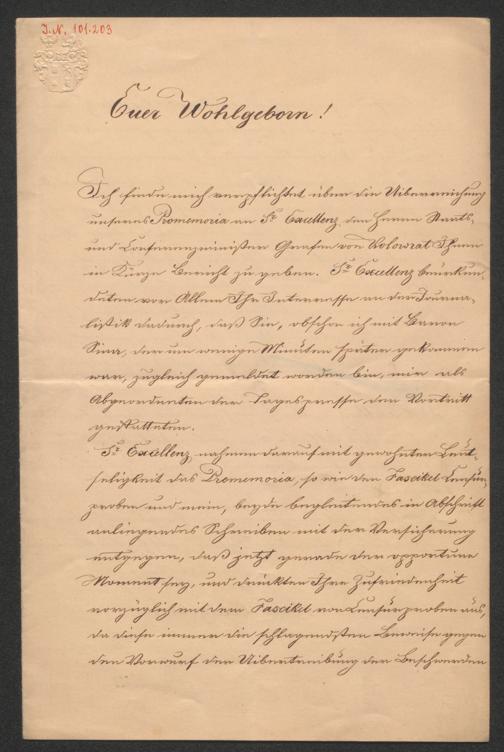 I.N. 101.203
Euer Wohlgeborn!
Ich finde mich verpflichtet über die Uiberreichung
unseres Promemoria an Sr. Excellenz den Herrn Staats-
und Conferenzminister Grafen von Kolowrat Ihnen
in Kürze Bericht zu geben. Sr. Excellenz beurkun-
deten vor Allem Ihr Interesse an der Journa-
listik dadurch, daß Sie, obschon ich mit Baron
Sina, der um wenige Minuten später gekommen
war, zugleich gemeldet worden bin, mir als
Abgeordneten der Tagespresse den Vortritt
gestatteten.
Sr. Excellenz nahmen darauf mit gewohnter Leut-
seligkeit das Promemoria, so wie den Fascikel Censur-
proben und mein, beyde begleitendes in Abschrift
anliegendes Schreiben mit der Versicherung
entgegen, daß jetzt gerade der opportune
Moment sey, und drückten Ihre Zufriedenheit
vorzüglich mit dem Fascikel von Censurproben aus,
da diese immer die schlagendsten Beweise gegen
den Vorwurf der Uibertreibung der Beschwerden